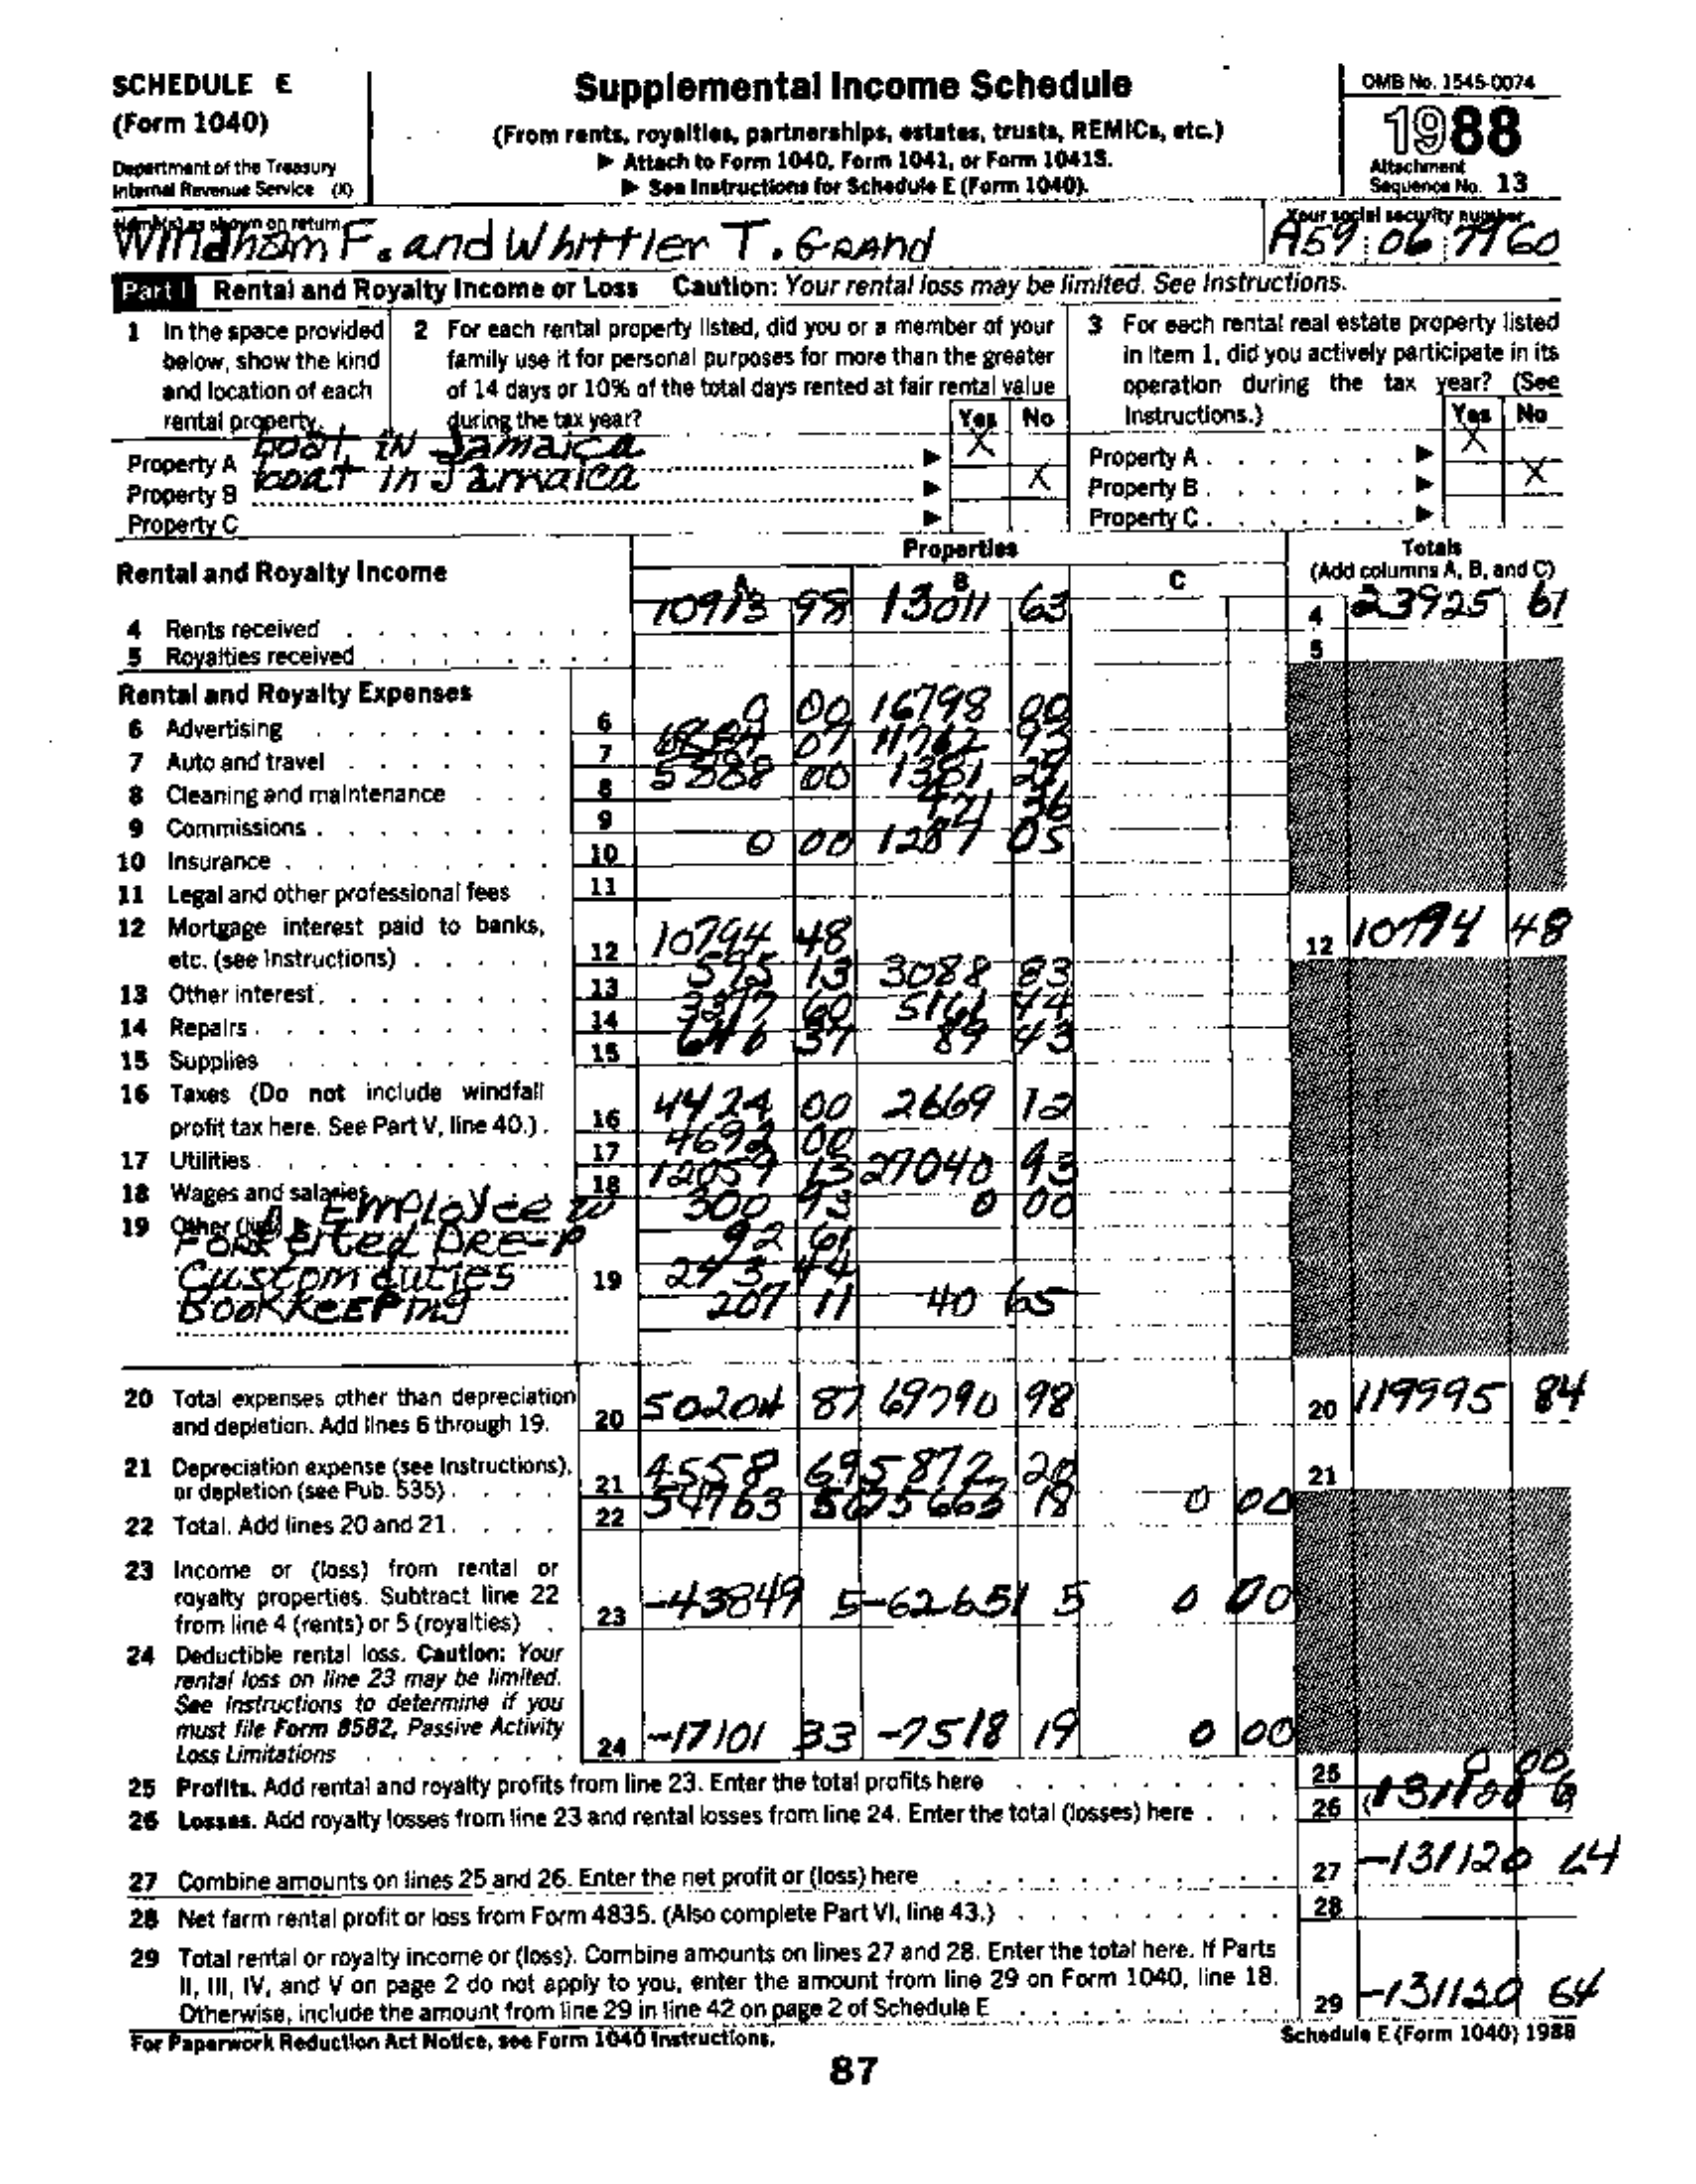 SCHEDULE E
(Form 1040)
Department of the Treasury
Internal Revenue Service (X)
Supplemental Income Schedule
(From rents, royalties, partnerships, estates, trusts, REMICs, etc.)
▶ Attach to Form 1040, Form 1041, or Form 1041S.
▶ See Instructions for Schedule E (Form 1040).
OMB No. 1545-0074
1988
Attachment
Sequence No. 13
Name(s) as shown on return
Windham F. and Whittier T. Grand
Your social security number
A59 06 7960
Part I Rental and Royalty Income or Loss Caution: Your rental loss may be limited. See Instructions.
1 In the space provided
below, show the kind
and location of each
rental property.
2 For each rental property listed, did you or a member of your
family use it for personal purposes for more than the greater
of 14 days or 10% of the total days rented at fair rental value
during the tax year?
Yes No
3 For each rental real estate property listed
in Item 1, did you actively participate in its
operation during the tax year? (See
Instructions.)
Yes No
Property A boat in Jamaica ▶ X
Property B boat in Jamaica ▶ X
Property C ▶
Property A . ▶ X
Property B . ▶ X
Property C . ▶
Rental and Royalty Income
Properties
A B C
Totals
(Add columns A, B, and C)
4 Rents received 10913 98 13011 63 4 23925 61
5 Royalties received 5
Rental and Royalty Expenses
6 Advertising 6 0 00 16798 00
7 Auto and travel 7 07 11762 93
8 Cleaning and maintenance 8 5388 00 1381 29
9 Commissions 9 36
10 Insurance 10 0 00 1287 05
11 Legal and other professional fees 11
12 Mortgage interest paid to banks,
etc. (see Instructions) 12 10794 48 12 10794 48
13 Other interest 13 595 13 3088 83
14 Repairs 14 60 5161 44
15 Supplies 15 37 89 43
16 Taxes (Do not include windfall
profit tax here. See Part V, line 40.) 16 4424 00 2669 12
17 Utilities 17 4692 00
18 Wages and salaries 18 12059 13 27040 93
19 Other (list) ▶ Employee w 300 93 0 00
Forfeited pre-p 92 61
Custom duties 19 273 44
Bookkeeping 207 11 40 65
20 Total expenses other than depreciation
and depletion. Add lines 6 through 19. 20 50204 87 69790 98 20 119995 84
21 Depreciation expense (see Instructions),
or depletion (see Pub. 535) 21 4558 69 5872 20 21
22 Total. Add lines 20 and 21. 22 54763 56 75663 18 0 00
23 Income or (loss) from rental or
royalty properties. Subtract line 22
from line 4 (rents) or 5 (royalties) 23 -43849 5 -62651 5 0 00
24 Deductible rental loss. Caution: Your
rental loss on line 23 may be limited.
See Instructions to determine if you
must file Form 8582, Passive Activity
Loss Limitations 24 -17101 33 -7518 19 0 00
25 Profits. Add rental and royalty profits from line 23. Enter the total profits here 25 0 00
26 Losses. Add royalty losses from line 23 and rental losses from line 24. Enter the total (losses) here 26 (131120 6
27 Combine amounts on lines 25 and 26. Enter the net profit or (loss) here 27 -131120 64
28 Net farm rental profit or loss from Form 4835. (Also complete Part VI, line 43.) 28
29 Total rental or royalty income or (loss). Combine amounts on lines 27 and 28. Enter the total here. If Parts
II, III, IV, and V on page 2 do not apply to you, enter the amount from line 29 on Form 1040, line 18.
Otherwise, include the amount from line 29 in line 42 on page 2 of Schedule E 29 -131120 64
For Paperwork Reduction Act Notice, see Form 1040 Instructions.
Schedule E (Form 1040) 1988
87